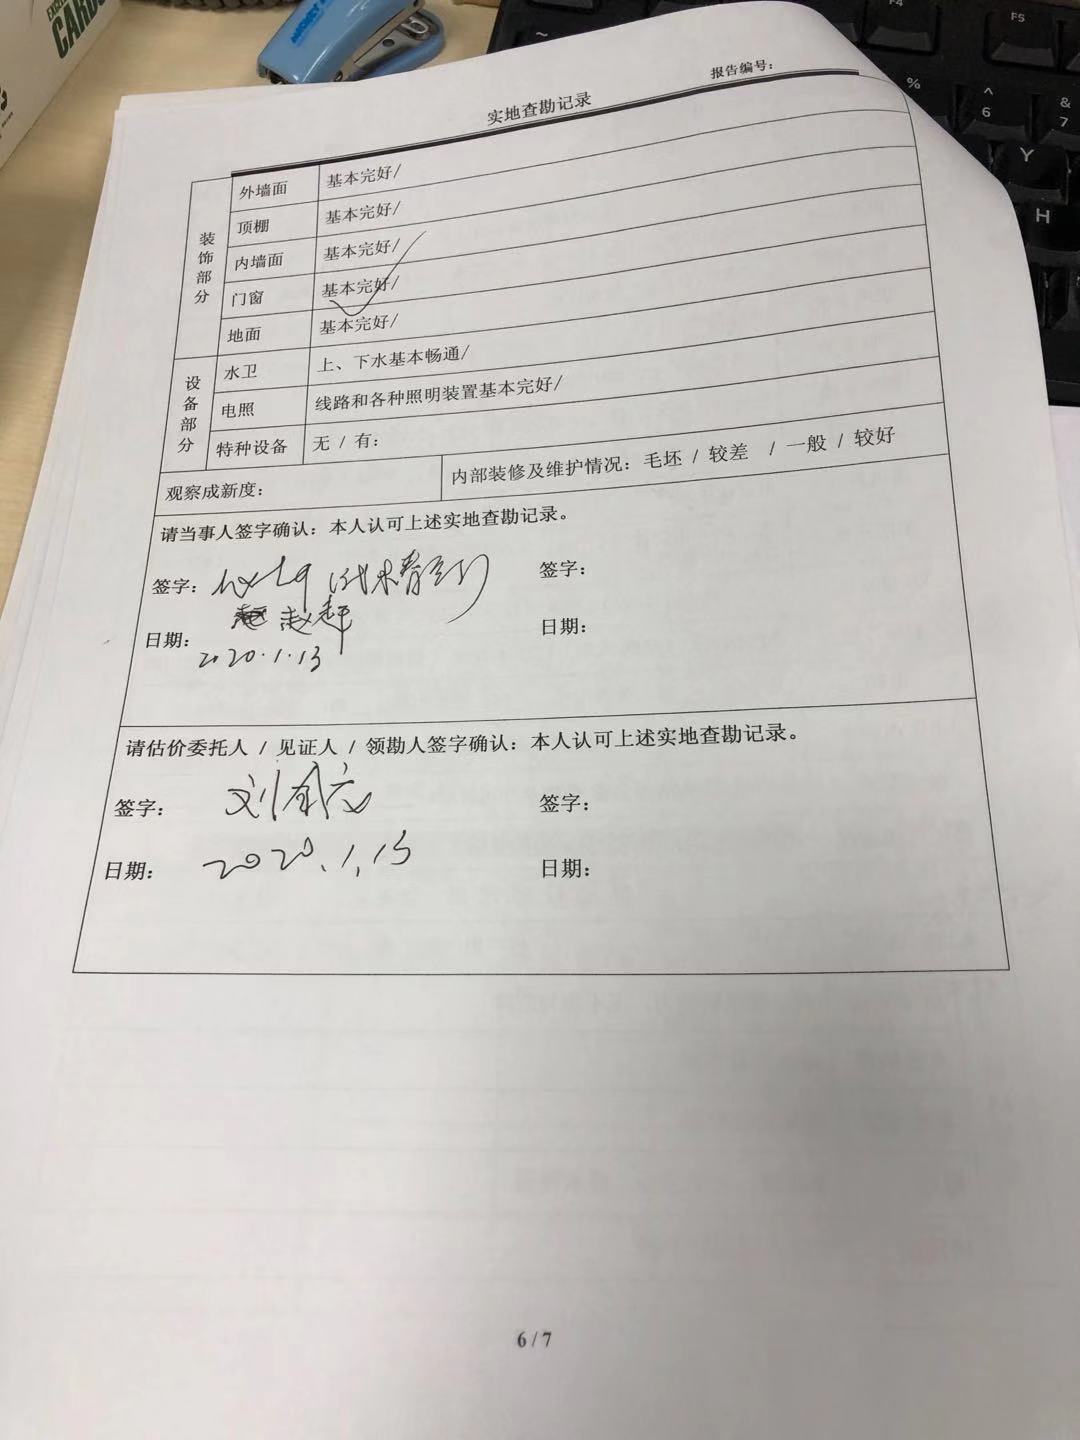 报告编号：
实地查勘记录
装饰部分
外墙面 基本完好/
顶棚 基本完好/
内墙面 基本完好/
门窗 基本完好/
地面 基本完好/
设备部分
水卫 上、下水基本畅通/
电照 线路和各种照明装置基本完好/
特种设备 无 / 有：
观察成新度： 内部装修及维护情况：毛坯 / 较差 / 一般 / 较好
请当事人签字确认：本人认可上述实地查勘记录。
签字： 签字：
赵
日期： 日期：
2020.1.13
请估价委托人 / 见证人 / 领勘人签字确认：本人认可上述实地查勘记录。
签字： 刘 签字：
日期： 2020.1.13 日期：
6 / 7
CARD
F4
F5
~
%
^
6
&
7
Y
H